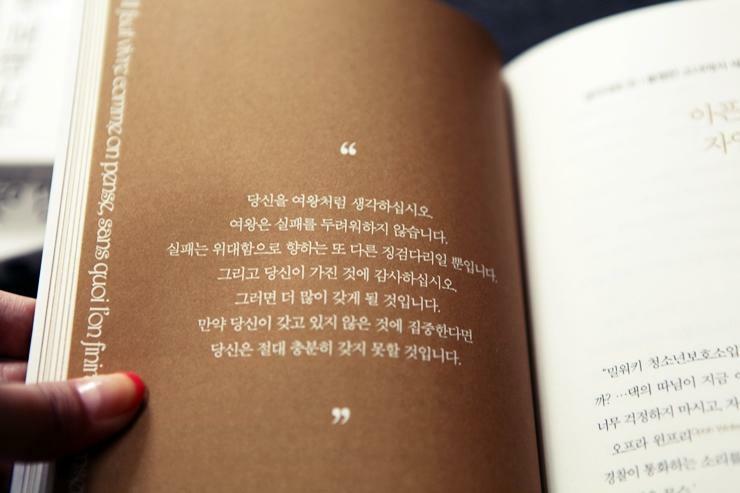 l faut vivre comme on pense, sans quoi l'on finir
“
당신을 여왕처럼 생각하십시오.
여왕은 실패를 두려워하지 않습니다.
실패는 위대함으로 향하는 또 다른 징검다리일 뿐입니다.
그리고 당신이 가진 것에 감사하십시오.
그러면 더 많이 갖게 될 것입니다.
만약 당신이 갖고 있지 않은 것에 집중한다면
당신은 절대 충분히 갖지 못할 것입니다.
”
아픈
"밀워키 청소년보호소입
까? …댁의 따님이 지금
너무 걱정하지 마시고, 자
오프라 윈프리
경찰이 통화하는 소리를